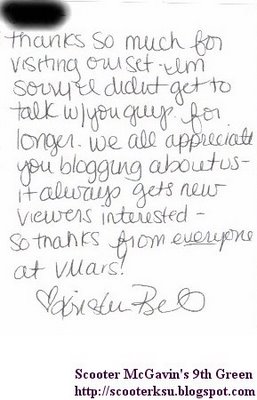 thanks so much for
visiting our set - I'm
sorry I didn't get to
talk w/you guys for
longer. we all appreciate
you blogging about us -
it always gets new
viewers interested -
so thanks from everyone
at VMars!
♡ Kristen Bell
Scooter McGavin's 9th Green
http://scooterksu.blogspot.com